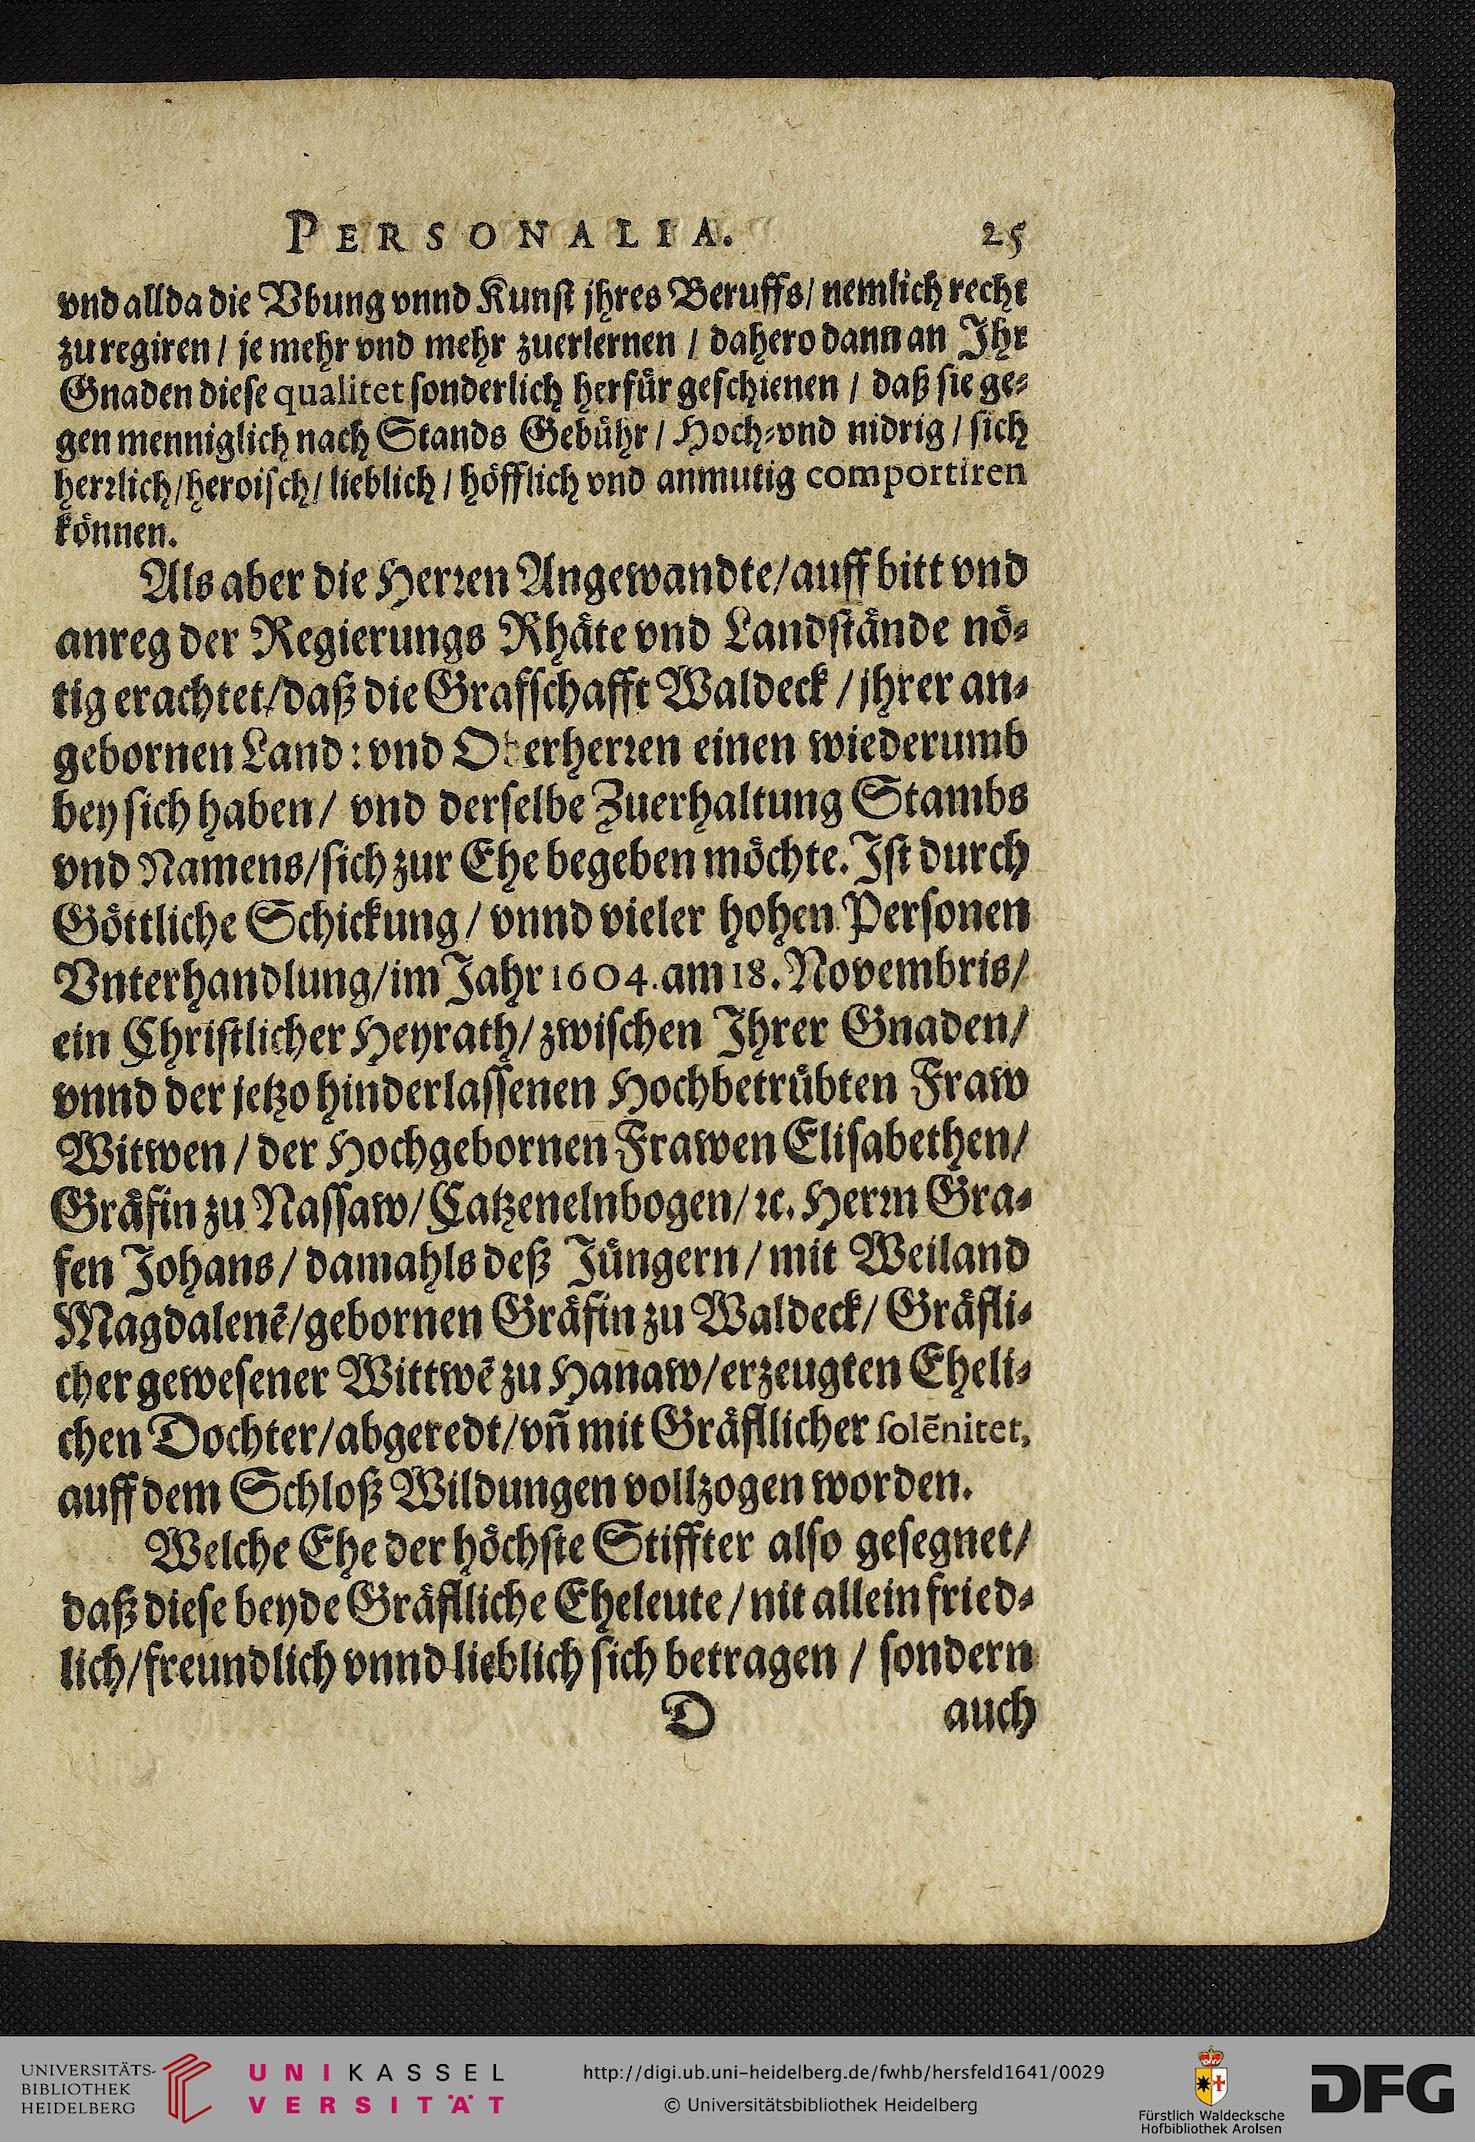 PERSONALIA. 25
vnd allda die Vbung vnnd Kunſt jhres Beruffs/ nemlich recht
zu regiren / je mehr vnd mehr zuerlernen / dahero dann an Ihr
Gnaden dieſe qualitet ſonderlich herfuͤr geſchienen / daß ſie ge⸗
gen menniglich nach Stands Gebuͤhr / Hoch⸗vnd nidrig / ſich
herꝛlich/heroiſch/ lieblich / hoͤfflich vnd anmutig comportiren
koͤnnen.
Als aber die Herꝛen Angewandte/auff bitt vnd
anreg der Regierungs Rhaͤte vnd Landſtaͤnde noͤ⸗
tig erachtet/daß die Grafſchafft Waldeck / jhrer an⸗
gebornen Land: vnd Oberherꝛen einen wiederumb
bey ſich haben/ vnd derſelbe Zuerhaltung Stambs
vnd Namens/ſich zur Ehe begeben moͤchte. Iſt durch
Goͤttliche Schickung / vnnd vieler hohen Perſonen
Vnterhandlung/im Jahr 1604. am 18. Novembris/
ein Chriſtlicher Heyrath/ zwiſchen Ihrer Gnaden/
vnnd der jetzo hinderlaſſenen Hochbetruͤbten Fraw
Witwen / der Hochgebornen Frawen Eliſabethen/
Graͤfin zu Naſſaw/ Catzenelnbogen/ ꝛc. Herꝛn Gra⸗
fen Johans / damahls deß Juͤngern / mit Weiland
Magdalenẽ/gebornen Graͤfin zu Waldeck/ Graͤfli⸗
cher geweſener Wittwẽ zu Hanaw/erzeugten Eheli⸗
chen Dochter/abgeredt/vñ mit Graͤfllicher ſolẽnitet,
auff dem Schloß Wildungen vollzogen worden.
Welche Ehe der hoͤchſte Stiffter alſo geſegnet/
daß dieſe beyde Graͤflliche Eheleute / nit allein fried⸗
lich/freundlich vnnd lieblich ſich betragen / ſondern
D auch
UNIVERSITÄTS-
BIBLIOTHEK
HEIDELBERG
UNIKASSEL
VERSITÄT
http://digi.ub.uni-heidelberg.de/fwhb/hersfeld1641/0029
© Universitätsbibliothek Heidelberg
Fürstlich Waldecksche
Hofbibliothek Arolsen
DFG